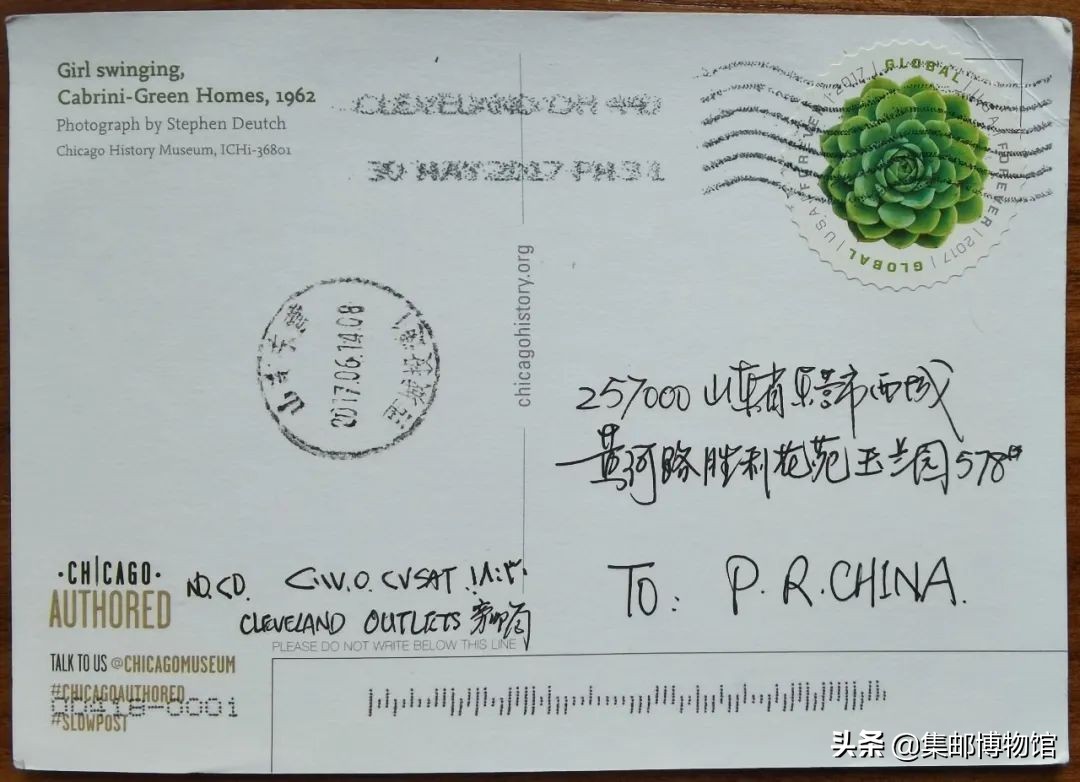 Girl swinging,
Cabrini-Green Homes, 1962
Photograph by Stephen Deutch
Chicago History Museum, ICHi-36801
CLEVELAND OH 440
30 MAY 2017 PM 3 L
GLOBAL | USA FOREVER | 2017 | GLOBAL | USA FOREVER | 2017 |
chicagohistory.org
山东东营
2017.06.14.08
257000 山东省东营市西城
黄河路胜利花苑玉兰园578#
TO: P.R.CHINA.
·CHICAGO·
AUTHORED
NO.CD.
CLEVELAND OUTLETS
PLEASE DO NOT WRITE BELOW THIS LINE
TALK TO US @CHICAGOMUSEUM
#CHICAGOAUTHORED
#SLOWPOST
头条 @集邮博物馆